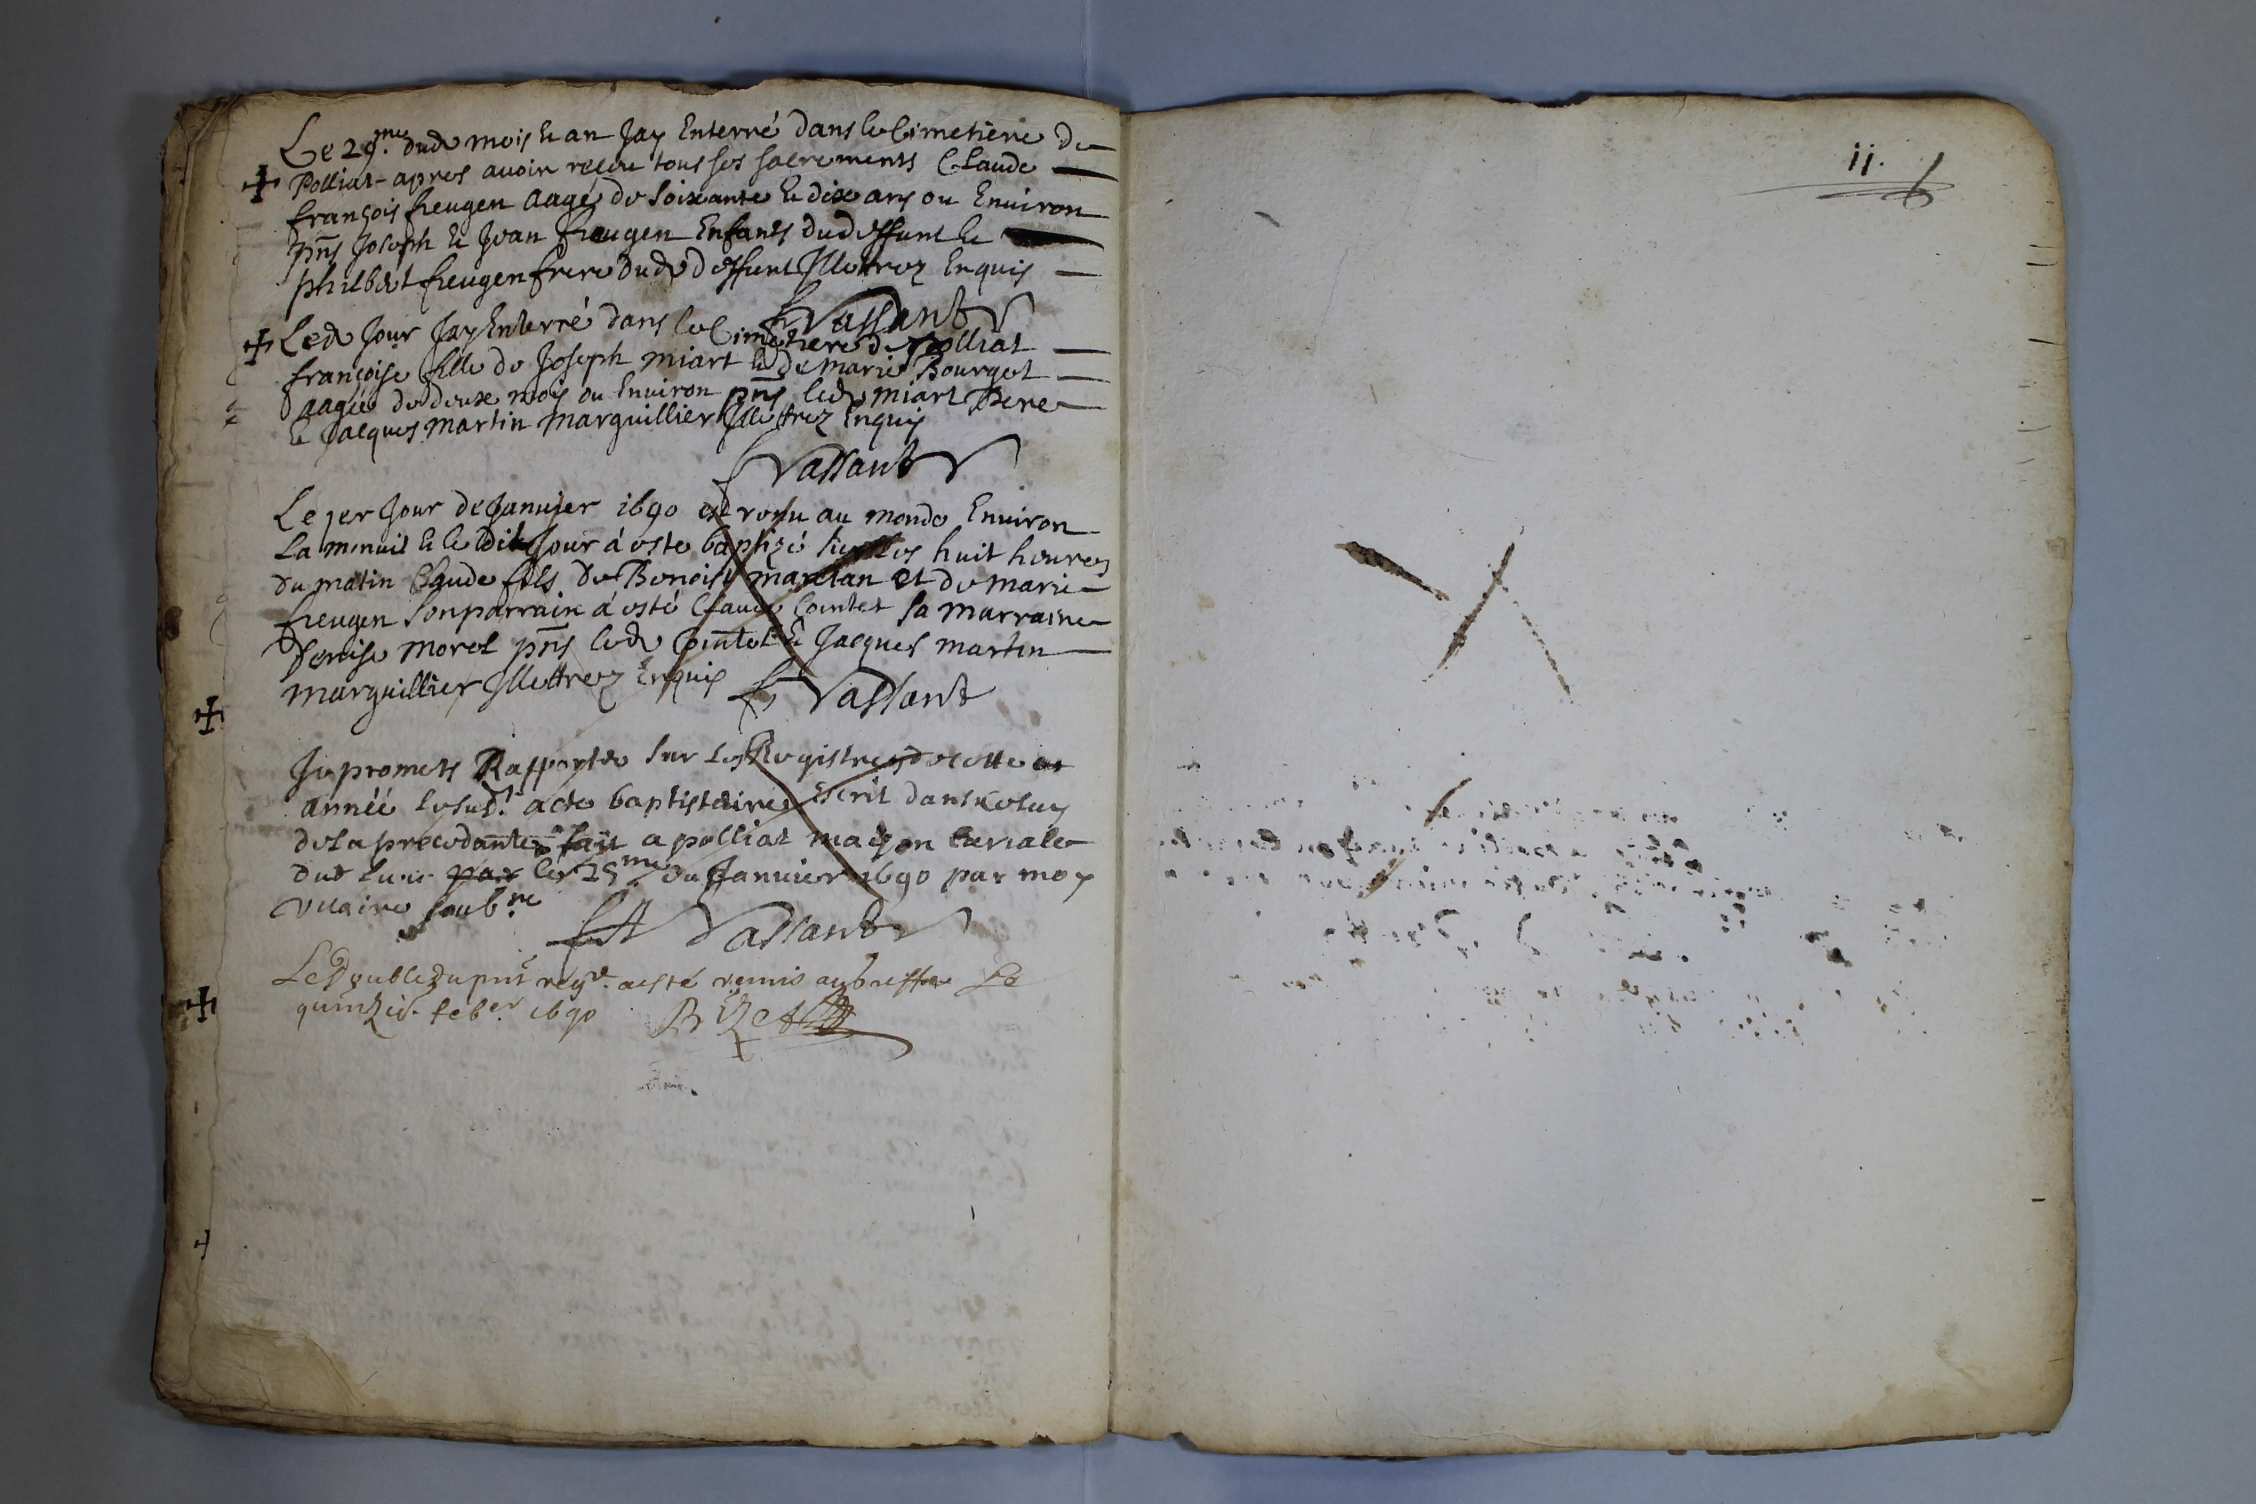 Le 29.me dud mois & an Jay Enterré dans le Cimetiere de
Polliat apres auoir receu tous ses sacrements Claude
françois freugen aagé de soixante & dix ans ou Environ
pñs Joseph & Jean freugen Enfants dud deffunt &
philbert freugen frere dud deffunt Illettrez Enquis
Vassant
Led Jour Jay Enterré dans le Cimetiere de Polliat
françoise fille de Joseph miart & de marie Bourget
aagée de deux mois ou Environ pñs led miart Pere
& Jacques martin marguillier Illettrez Enquis
Vassant
Le 1er Jour de Januier 1690 est venu au monde Environ
la minuit & le dit Jour à esté baptizé les huit heures
du matin Claude fils de Benoist et de marie
freugen son parrain à esté Claude Cointet sa marraine
Denise morel pñs led Cointet & Jacques martin
marguillier Illettrez Enquis
Vassant
Je promets Rapporter sur les Registres de cette
année le susd. acte baptistaire escrit dans celuy
de la precedante fait a polliat maison curiale
dud lieu par le 25me du Januier 1690 par moy
vicaire soub.ne
Vassant
Le double du pnt regre. a esté remis au greffe le
quinzie. feber 1690
11.